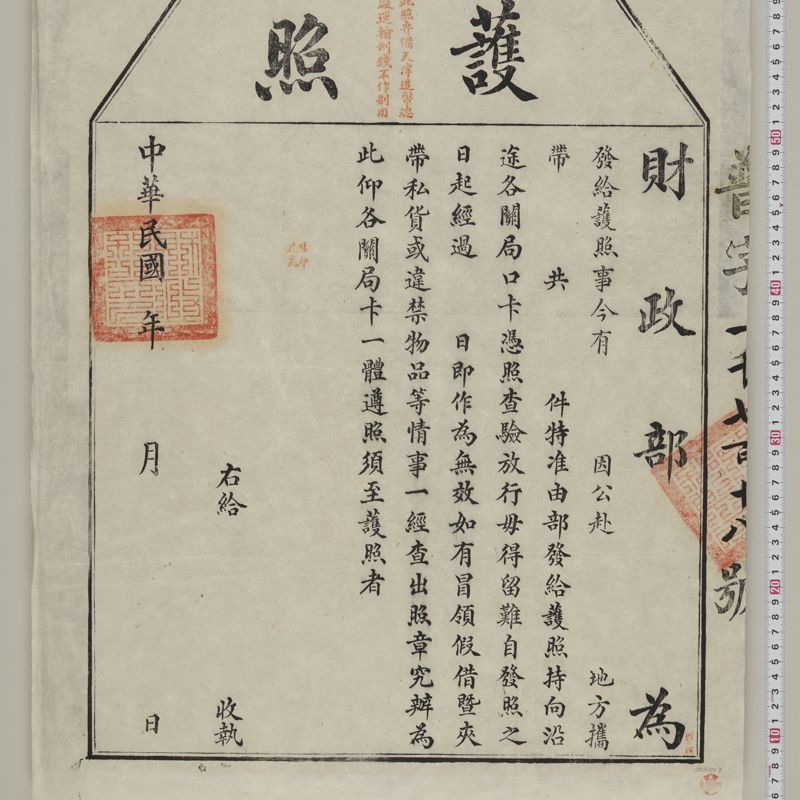 護照
此照專備天津造幣總
廠運輸制錢不作別用
財政部為
發給護照事今有 因公赴 地方攜
帶 共 件特准由部發給護照持向沿
途各關局口卡憑照查驗放行毋得留難自發照之
日起經過 日即作為無效如有冒領假借暨夾
帶私貨或違禁物品等情事一經查出照章究辦為
此仰各關局卡一體遵照須至護照者
右給 收執
中華民國 年 月 日
一千七百十八號